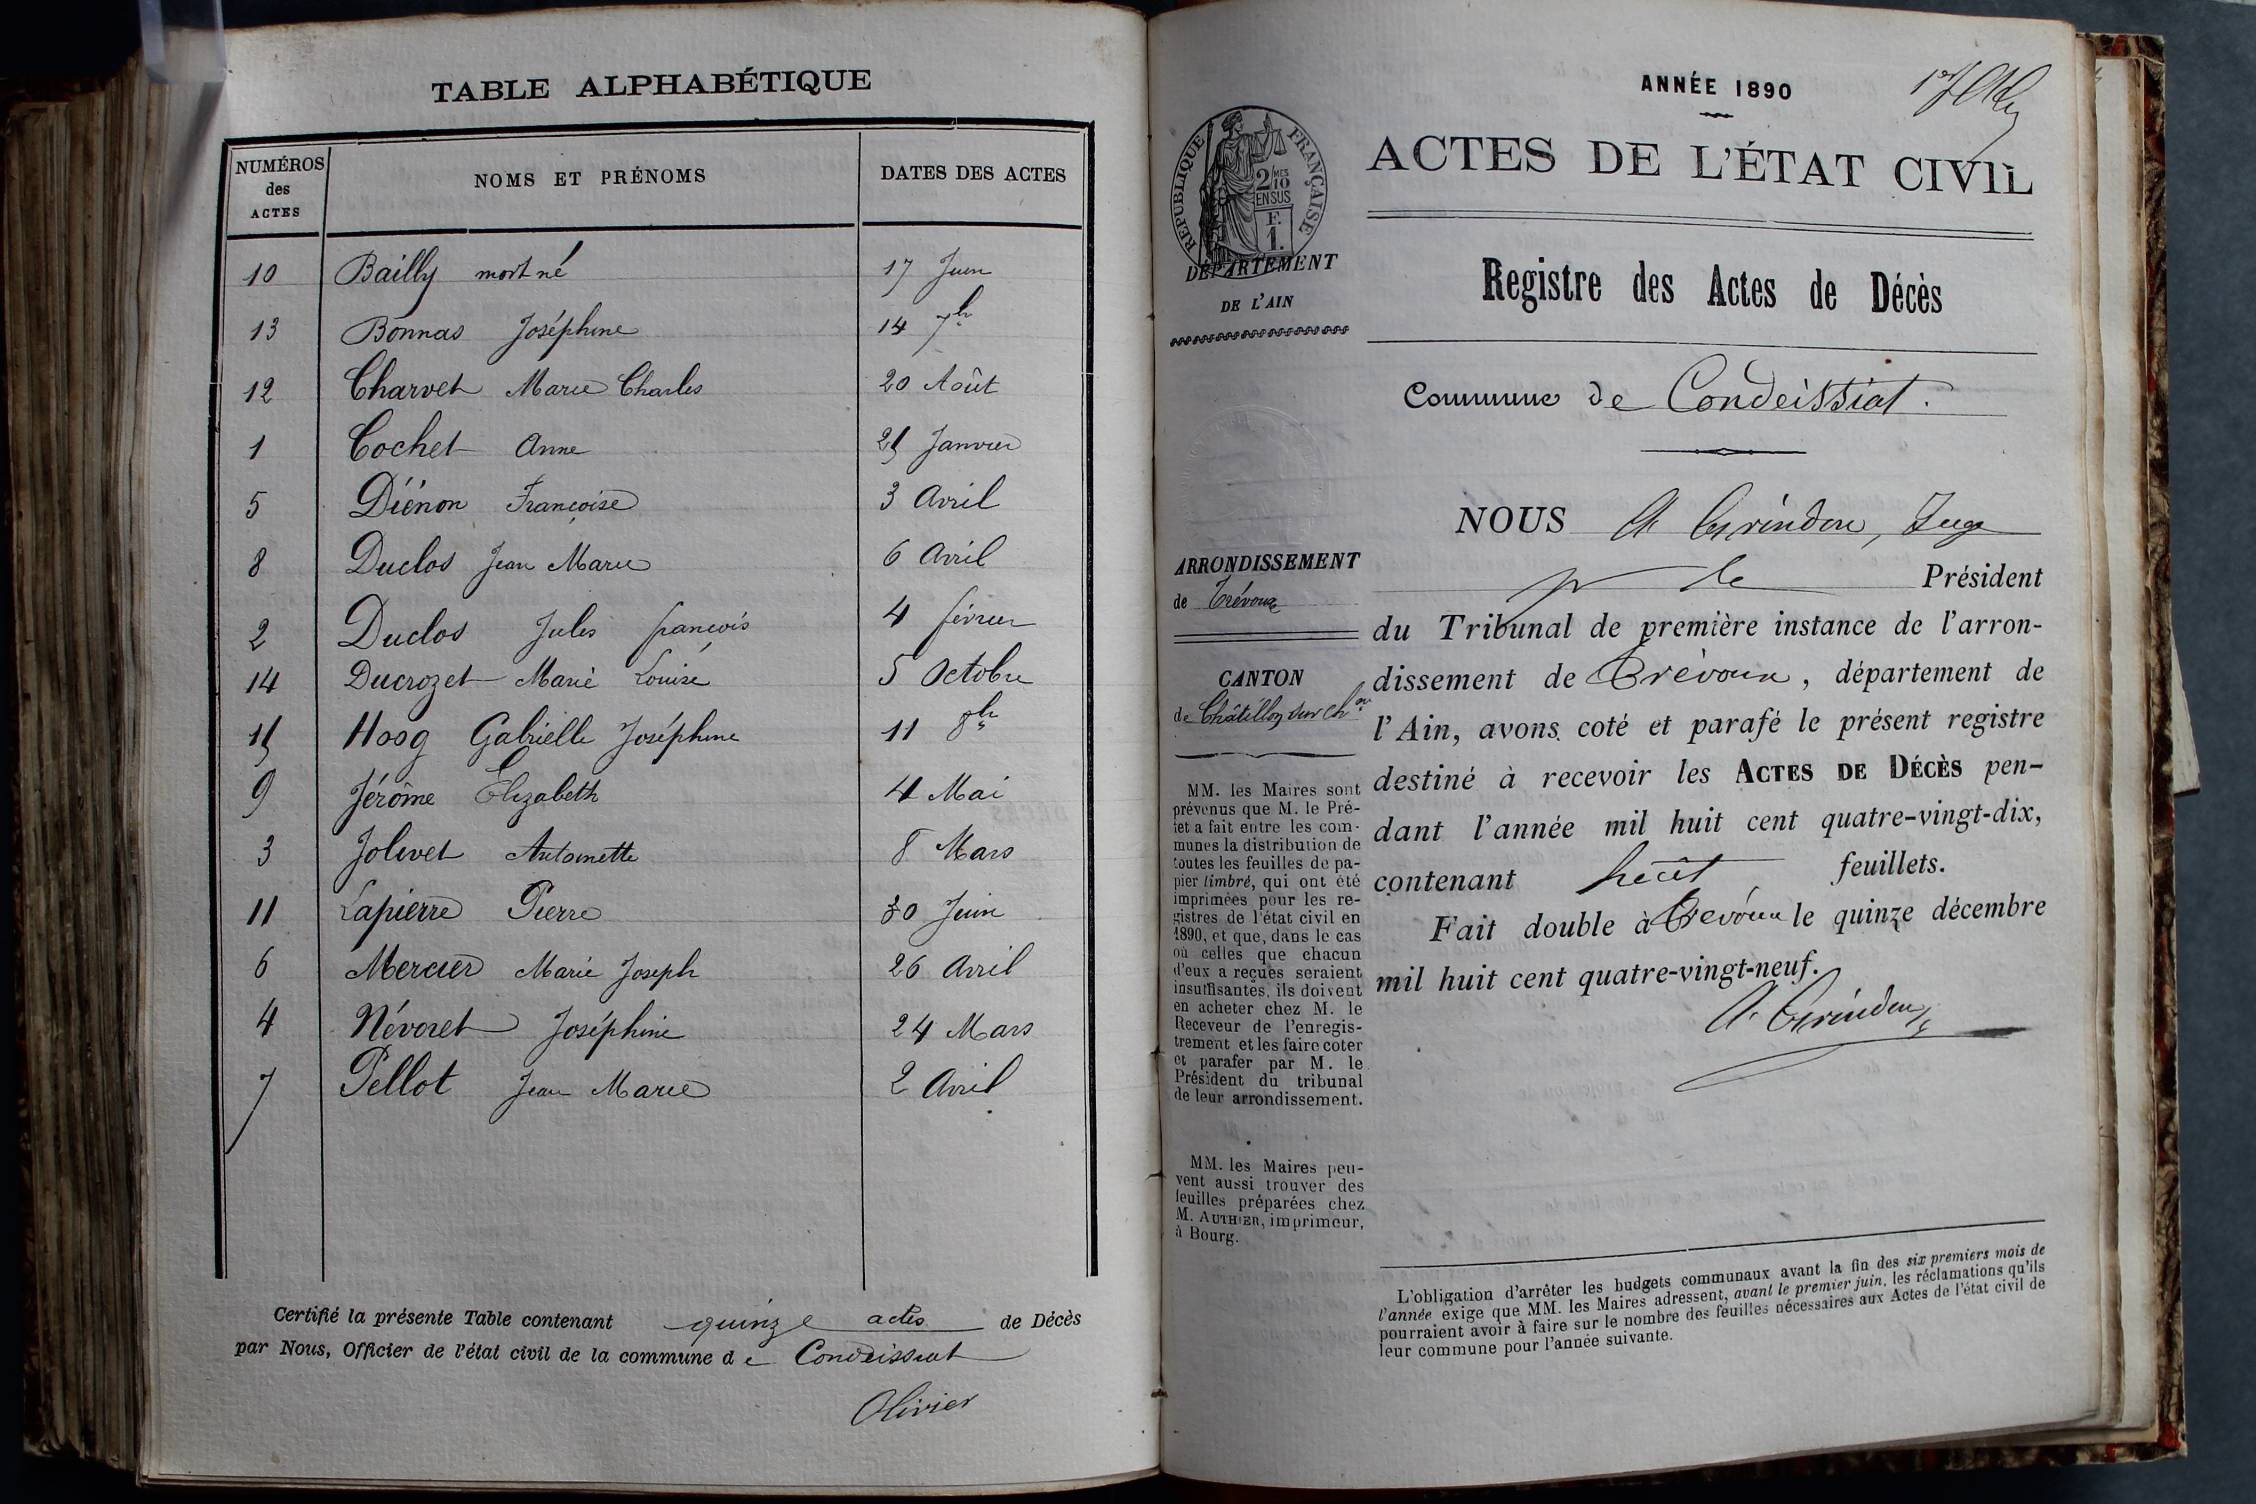 TABLE ALPHABÉTIQUE
NUMÉROS des ACTES
NOMS ET PRÉNOMS
DATES DES ACTES
10 Bailly mort né 17 Juin
13 Bonnas Joséphine 14 7bre
12 Charvet Marie Charles 20 Août
1 Cochet Anne 25 Janvier
5 Diénon Françoise 3 Avril
8 Duclos Jean Marie 6 Avril
2 Duclos Jules françois 4 février
14 Ducrozet Marie Louise 5 Octobre
15 Hoog Gabrielle Joséphine 11 8bre
9 Jérôme Elizabeth 4 Mai
3 Jolivet Antoinette 8 Mars
11 Lapierre Pierre 30 Juin
6 Mercier Marie Joseph 26 Avril
4 Névoret Joséphine 24 Mars
7 Pellot Jean Marie 2 Avril
Certifié la présente Table contenant quinze actes de Décès
par Nous, Officier de l'état civil de la commune de Condeissiat
Olivier
ANNÉE 1890
ACTES DE L'ÉTAT CIVIL
RÉPUBLIQUE FRANÇAISE
2 MES 10
EN SUS
F.
1.
DÉPARTEMENT
DE L'AIN
Registre des Actes de Décès
Commune de Condeissiat.
ARRONDISSEMENT
de Trévoux
CANTON
de Châtillon sur Chne
MM. les Maires sont
prévenus que M. le Pré-
fet a fait entre les com-
munes la distribution de
toutes les feuilles de pa-
pier timbré, qui ont été
imprimées pour les re-
gistres de l'état civil en
1890, et que, dans le cas
où celles que chacun
d'eux a reçues seraient
insuffisantes, ils doivent
en acheter chez M. le
Receveur de l'enregis-
trement et les faire coter
et parafer par M. le
Président du tribunal
de leur arrondissement.
MM. les Maires peu-
vent aussi trouver des
feuilles préparées chez
M. AUTHIER, imprimeur,
à Bourg.
NOUS A Grindon, Juge
pr le Président
du Tribunal de première instance de l'arron-
dissement de Trévoux, département de
l'Ain, avons coté et parafé le présent registre
destiné à recevoir les ACTES DE DÉCÈS pen-
dant l'année mil huit cent quatre-vingt-dix,
contenant huit feuillets.
Fait double à Trévoux le quinze décembre
mil huit cent quatre-vingt-neuf.
A. Grindon
L'obligation d'arrêter les budgets communaux avant la fin des six premiers mois de
l'année exige que MM. les Maires adressent, avant le premier juin, les réclamations qu'ils
pourraient avoir à faire sur le nombre des feuilles nécessaires aux Actes de l'état civil de
leur commune pour l'année suivante.